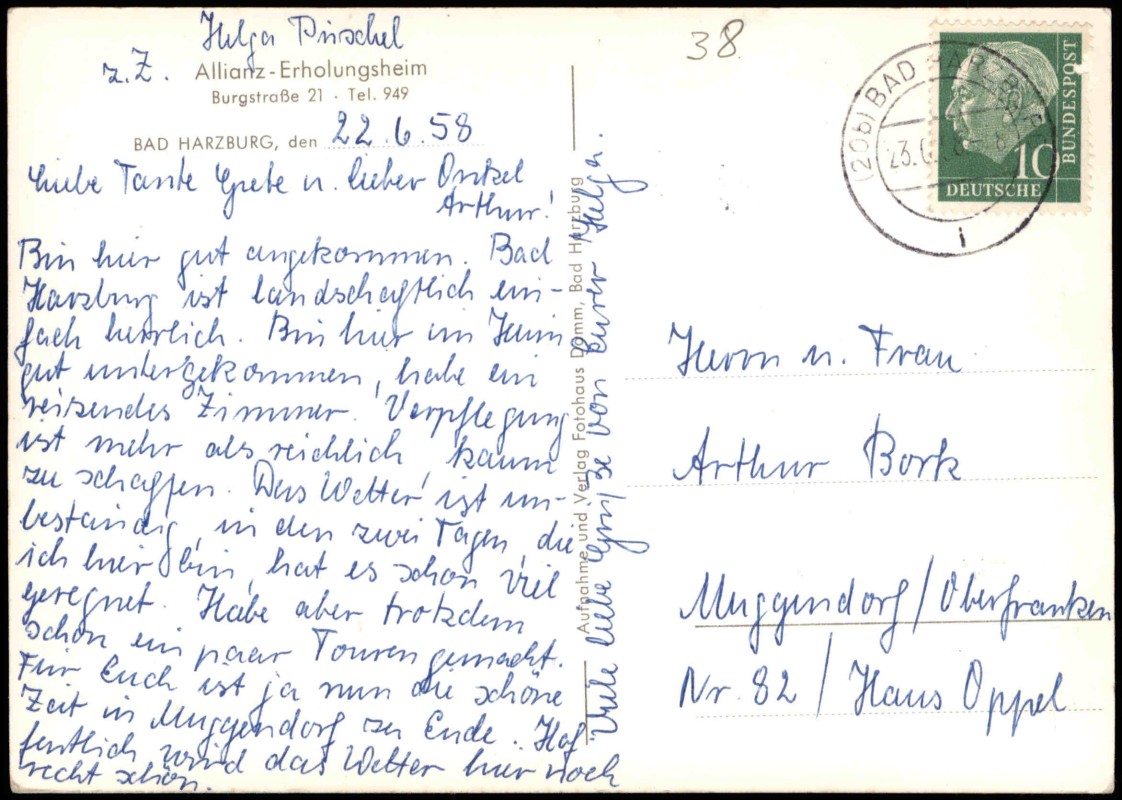 Helga Püschel
z. Z. Allianz-Erholungsheim
Burgstraße 21 · Tel. 949
BAD HARZBURG, den 22.6.58
Liebe Tante Grete u. lieber Onkel
Arthur!
Bin hier gut angekommen. Bad
Harzburg ist landschaftlich ein-
fach herrlich. Bin hier im Heim
gut untergekommen, habe ein
reizendes Zimmer. Verpflegung
ist mehr als reichlich, kaum
zu schaffen. Das Wetter ist un-
beständig, in den zwei Tagen, die
ich hier bin, hat es schon viel
geregnet. Habe aber trotzdem
schon ein paar Touren gemacht.
Für Euch ist ja nun die schöne
Zeit in Muggendorf zu Ende. Hof-
fentlich wird das Wetter hier noch
recht schön.
Viele liebe Grüße von Eurer Helga.
Aufnahme und Verlag Fotohaus Domm, Bad Harzburg
38
(20b) BAD HARZBURG
23.6.58
i
10
DEUTSCHE
BUNDESPOST
Herrn u. Frau
Arthur Bork
Muggendorf/Oberfranken
Nr. 82 / Haus Oppel